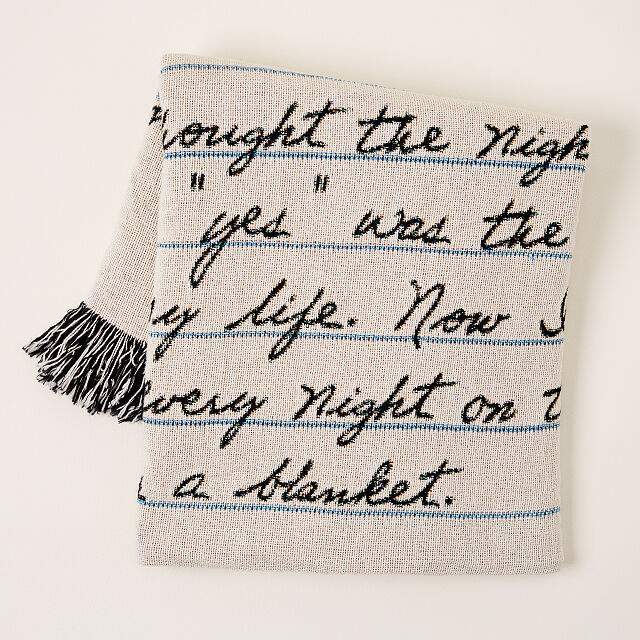 ought the nigh
"yes" was the
y life. Now
very night on t
a blanket.